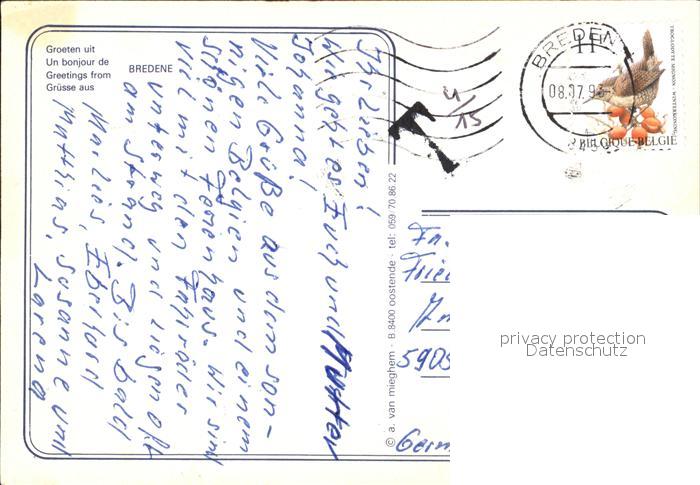 Groeten uit
Un bonjour de
Greetings from
Grüsse aus
BREDENE
Ihr Lieben!
Wie geht es Euch und Mutter
Johanna!
Viele Grüße aus dem son-
nigen Belgien und einem
schönen Ferienhaus. Wir sind
viel mit den Fahrräder
unterweg und liegen oft
am Strand. Bis bald
Marlies, Eberhard
Matthias, Susanne und
Larena
© a. van mieghem - B.8400 oostende - tel: 059/70 86 22
T
4/15
BREDEN
08.07.9
TROGLODYTE MIGNON - WINTERKONING
BELGIQUE-BELGIE
Fa.
5905
Germ
privacy protection
Datenschutz